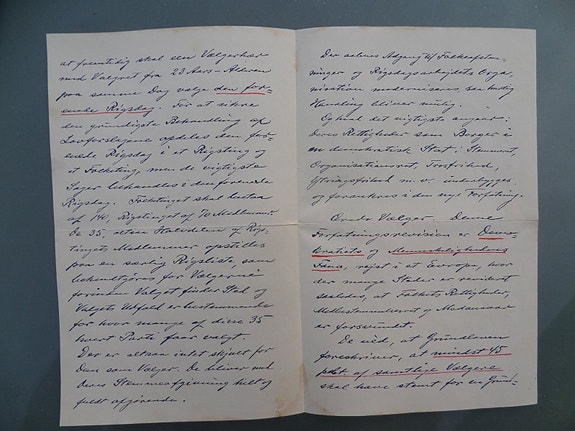 at fremtidig skal een Vælgerhær
med Valgret fra 23 Aars-Alderen
paa samme Dag vælge den for-
enede Rigsdag. For at sikre
den grundigste Behandling af
Lovforslagene opdeles den for-
enede Rigsdag i et Rigsting og
et Folketing, men de vigtigste
Sager behandles i den forenede
Rigsdag. Folketinget skal bestaa
af 140, Rigstinget af 70 Medlemmer.
De 35, altsaa Halvdelen af Rigs-
tingets Medlemmer opstilles
paa en særlig Rigsliste som
bekendtgøres for Vælgerne
forinden Valget finder Sted og
Valgets Udfald er bestemmende
for hvor mange af disse 35
hvert Parti faar valgt.
Der er altsaa intet skjult for
Dem som Vælger. De bliver ved
Deres Stemmeafgivning helt og
fuldt afgørende.
Der aabnes Adgang til Folkeafstem-
ninger og Rigsdagsarbejdets Orga-
nisation moderniseres, saa hurtig
Handling bliver mulig.
Og hvad det vigtigste angaar:
Deres Rettigheder som Borger i
en demokratisk Stat: Stemmeret,
Organisationsret, Trosfrihed,
Ytringsfrihed m. v. underbygges
og forankres i den nye Forfatning.
Ærede Vælger. Denne
Forfatningsrevision er Demo-
kratiets og Menneskelighedens
Fane, rejst i et Europa, hvor
der mange Steder regeres
saaledes, at Folkets Rettigheder,
Medbestemmelsesret og Medansvar
er forsvundet.
De ved, at Grundloven
foreskriver, at mindst 45
pct. af samtlige Vælgere
skal have stemt for en Grund-